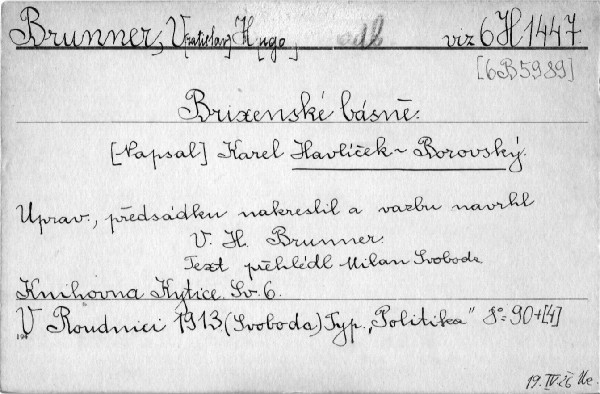 Brunner, V[ratislav] H[ugo] viz 6H1447
[6B5989]
Brixenské básně.
[Napsal] Karel Havlíček-Borovský.
Uprav., předsádku nakreslil a vazbu navrhl
V. H. Brunner.
Text přehlédl Milan Svoboda
Knihovna Kytice. Sv. 6.
V Roudnici 1913 (Svoboda) Typ. „Politika" 8°- 90+[4]
19. IV. 26